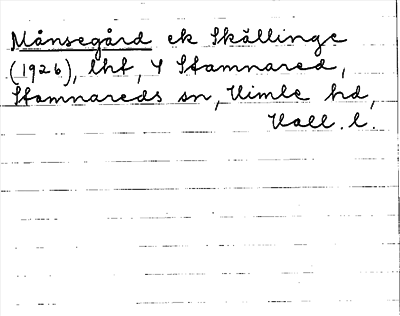 Månsegård ek Skällinge
(1926), lht, Y Stamnared,
Stamnareds sn, Himle hd,
Hall. l.